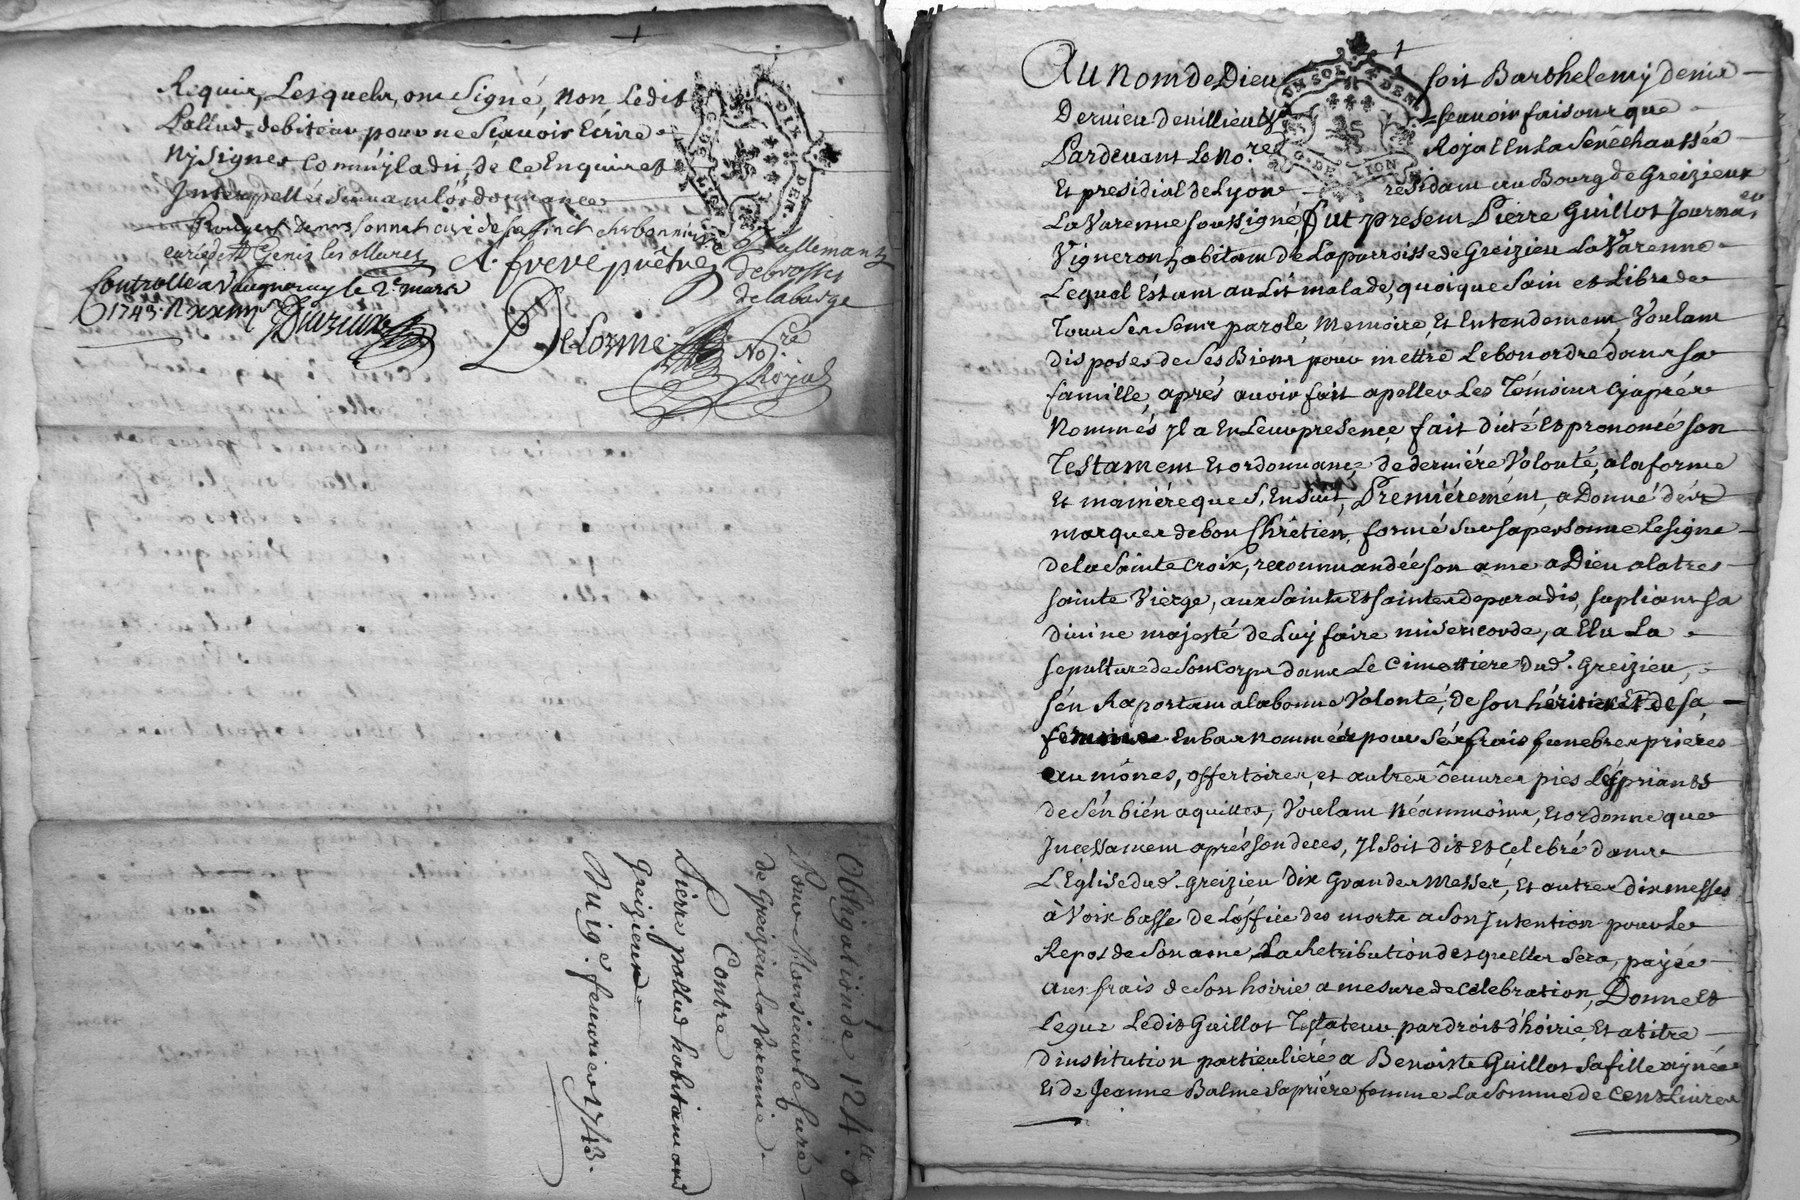 Requis, Lesquels, ont Signé, Non Ledit
Pallud debiteur pour ne Scavoir Ecrire
Ny Signer Comm'yl a dit, de Ce Enquis et
Interpellé Suivant l'ordonnance
curé de St Genis les ollieres A. frere prêtre
debrosses
delabarge
Controllé à Vaugneray le 2e mars
1743. R
Delorme No.re Royal
Obligation de 124.ll 0
Pour Monsieur le Curé
de Greizieu la Varenne.
Contre
Pierre pallud habitant aud
Greizieux.
Du 19.e feuurier 1743.
UN SOL 4 DEN
G. DE LION
Au Nom de Dieu soit Barthelemy Denis
Dernieu Deuillieu scauoir faisons que
Pardeuant Le No.re Royal En La Sénéchaussée
Et presidial de Lyon residant au Bourg de Greizieux
La Varenne soussigné, fut present Pierre Guillot Journalier
Vigneron habitant de La parroisse de Greizieu La Varenne
Lequel Estant au Lit malade, quoique Sain et Libre de
Tous Ses Sens parole, Memoire, Et Entendement, Voulant
disposer de Ses Biens, pour mettre Le bon ordre dans sa
famille, aprés auoir fait apeller Les Témoins Cy aprés
Nommés Jl a En Leur presence fait dicté Et prononcé son
Testament Et ordonnance de derniére Volonté, a la forme
Et maniére que S'Ensuit, Premiérement, a Donné des
marques de bon Chrêtien, formé Sur sa personne Le signe
de la Sainte Croix, recommandée son ame a Dieu a la tres
sainte Vierge, aux Saints Et saintes de paradis, supliant sa
diuine majesté de Luy faire misericorde, a Elu La
sepulture de Son Corps dans Le Cimettiere dud. Greizieu,
s'én Raportant a la bonne Volonté, de son héritier Et de sa
femme En bas nommés pour Sés frais funebres prieres
aumônes, offertoires, et autres ôeuures pies Les priants
de S'én bién aquitter, Voulant Néanmoins, Et ordonne que
Jncessament aprés son deces, Jl Soit dit Et Celebré dans
L'Eglise dud. Greizieu dix Grandes Messes, Et autres dix messes
à Voix basse de L'office des morts a Son Jntention pour Le
Repos de Son ame, La Retribution desquelles Sera, payée
aux frais de Son hoirie a mesure de Célebration, Donne Et
Legue Ledit Guillot Testateur par droit d'hoirie, Et a titre
d'institution particuliére a Benoiste Guillot Sa fille aynée
Et de Jeanne Balme Sa priére femme La Somme de Cent Liures